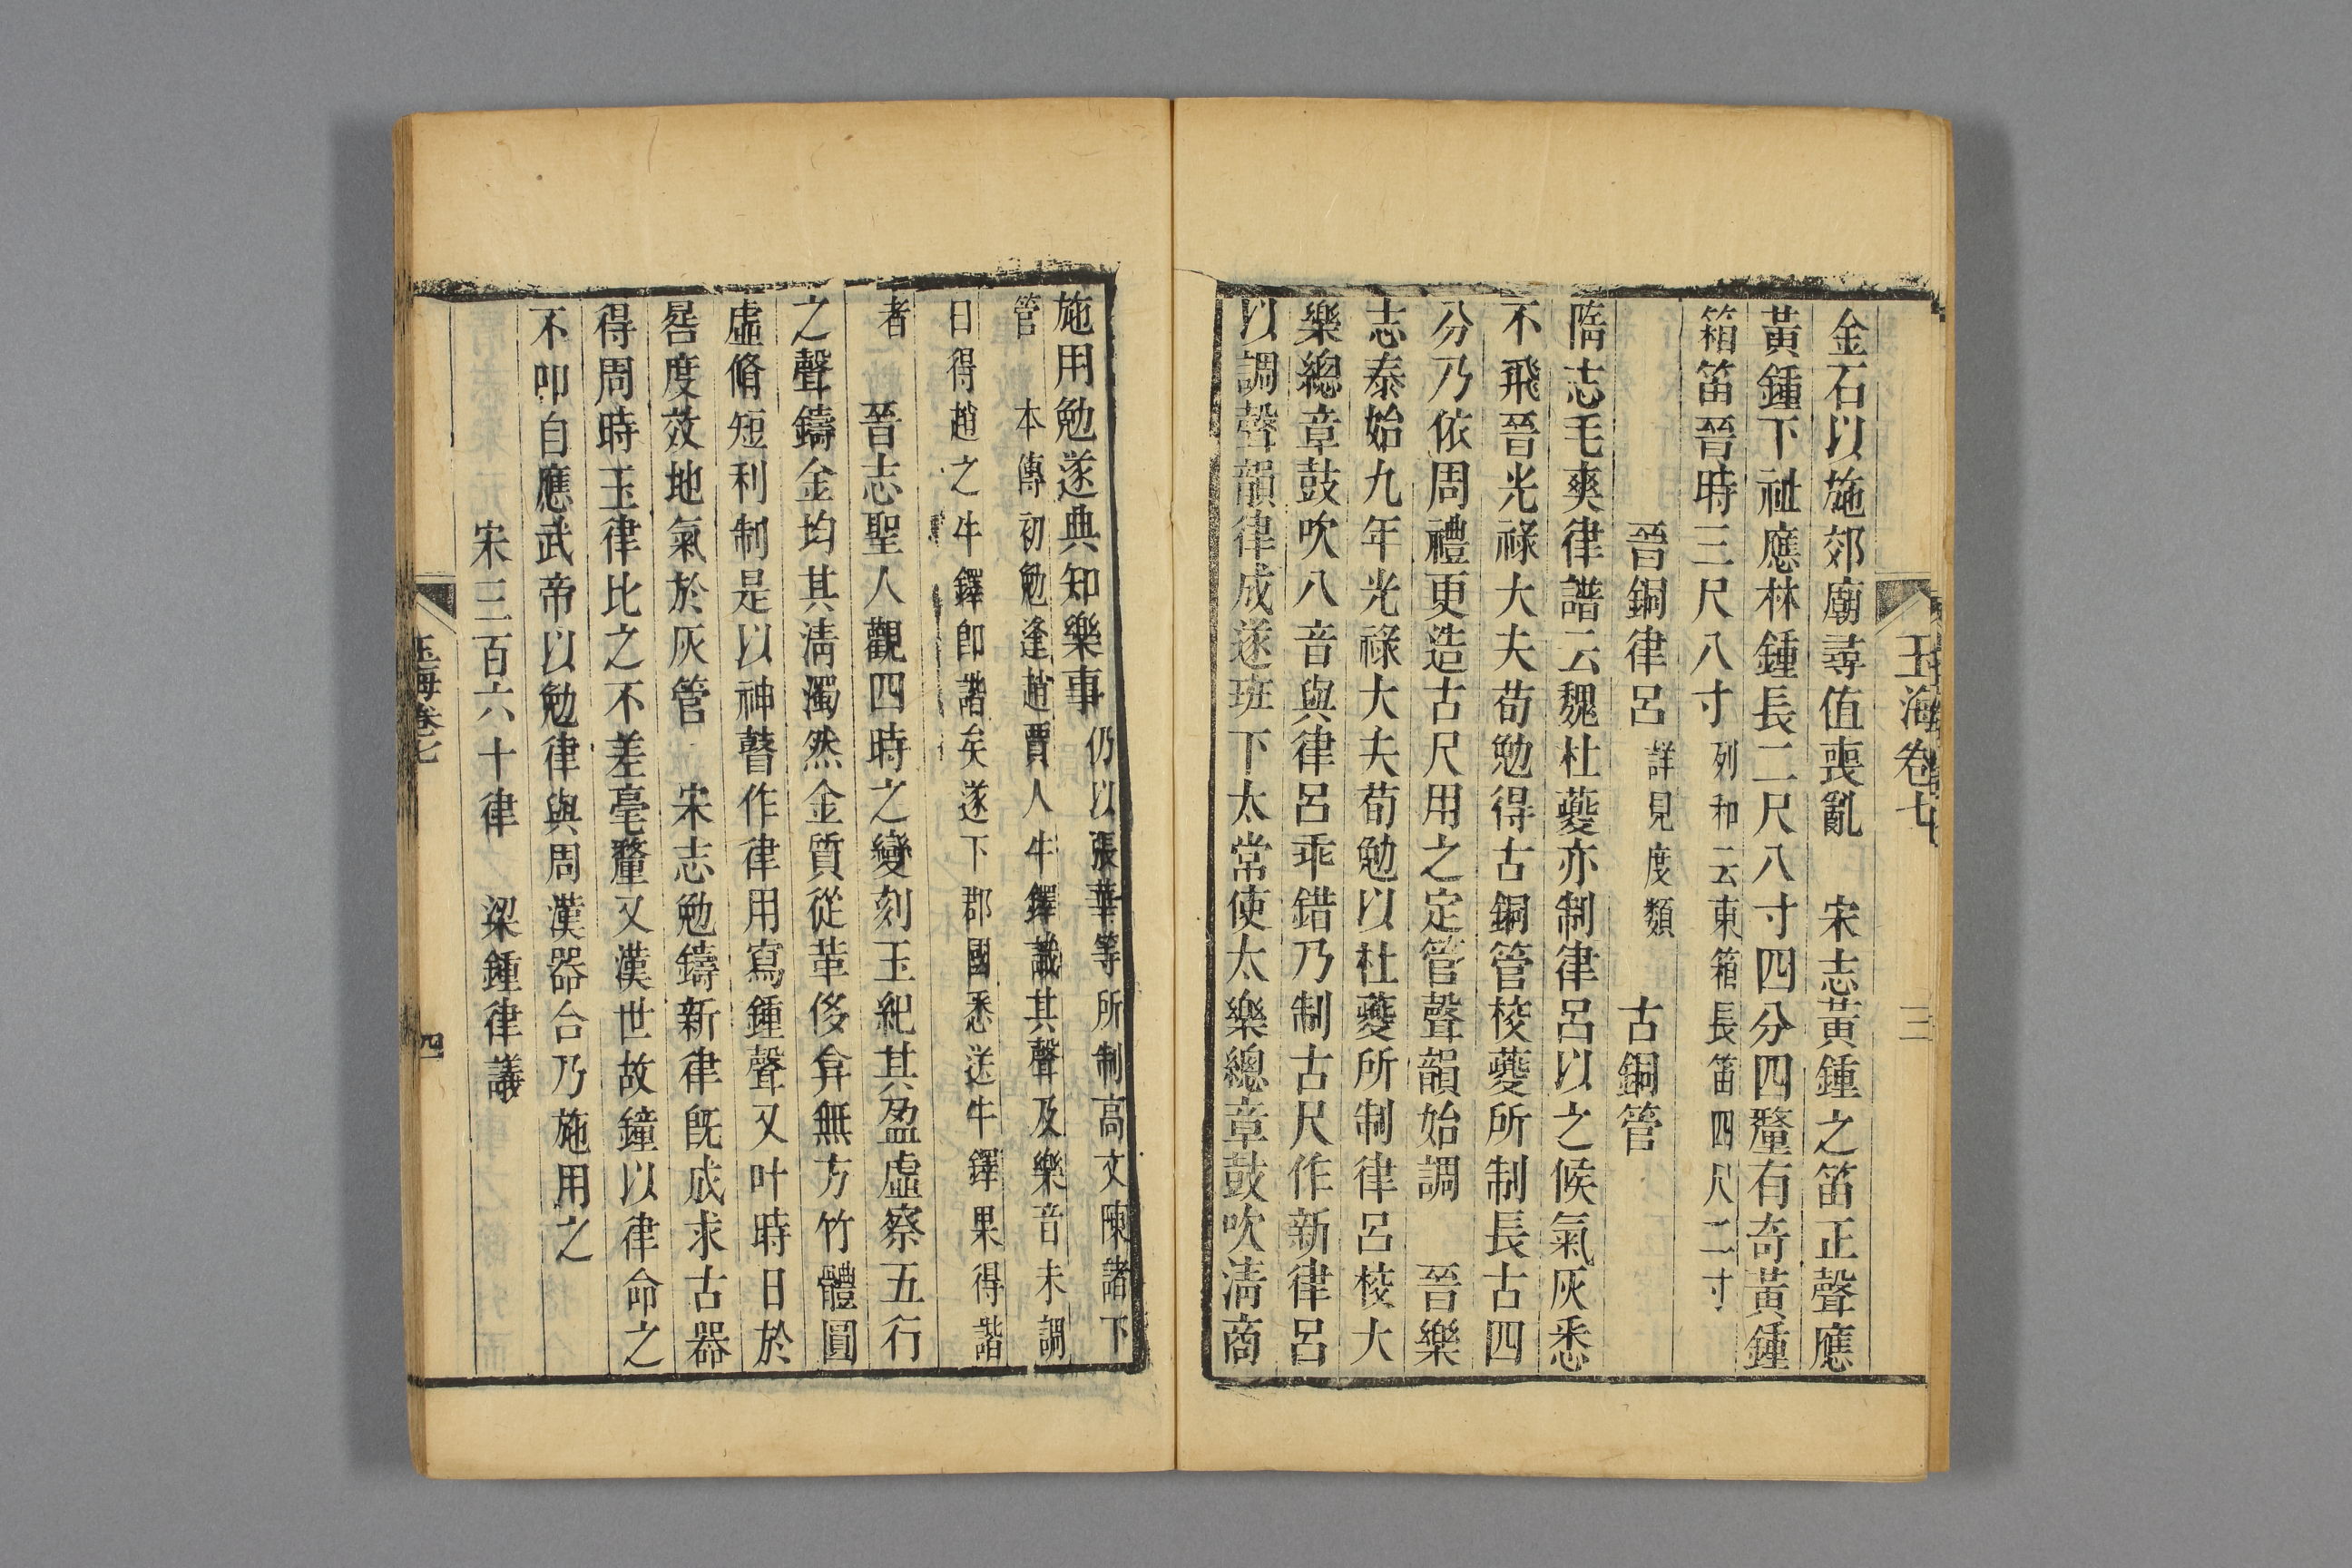 玉海卷七　三
金石以施郊廟尋值喪亂　宋志黃鍾之笛正聲應
黃鍾下祉應林鍾長二尺八寸四分四釐有奇黃鍾
箱笛晉時三尺八寸列和云東箱長笛四尺二寸
晉銅律呂詳見度類　古銅管
隋志毛爽律譜云魏杜夔亦制律呂以之候氣灰悉
不飛晉光祿大夫荀勉得古銅管校夔所制長古四
分乃依周禮更造古尺用之定管聲韻始調　晉樂
志泰始九年光祿大夫荀勉以杜夔所制律呂校大
樂總章鼓吹八音與律呂乖錯乃制古尺作新律呂
以調聲韻律成遂班下太常使太樂總章鼓吹清商
施用勉遂典知樂事仍以張華等所制高文陳諸下
管　本傳初勉逢趙賈人牛鐸識其聲及樂音未調
日得趙之牛鐸即諧矣遂下郡國悉送牛鐸果得諧
者　晉志聖人觀四時之變刻玉紀其盈虛察五行
之聲鑄金均其清濁然金質從革侈弇無方竹體圓
虛脩短利制是以神瞽作律用寫鍾聲又叶時日於
晷度效地氣於灰管　宋志勉鑄新律旣成求古器
得周時玉律比之不差毫釐又漢世故鐘以律命之
不叩自應武帝以勉律與周漢器合乃施用之
宋三百六十律　梁鍾律議
玉海卷七　四